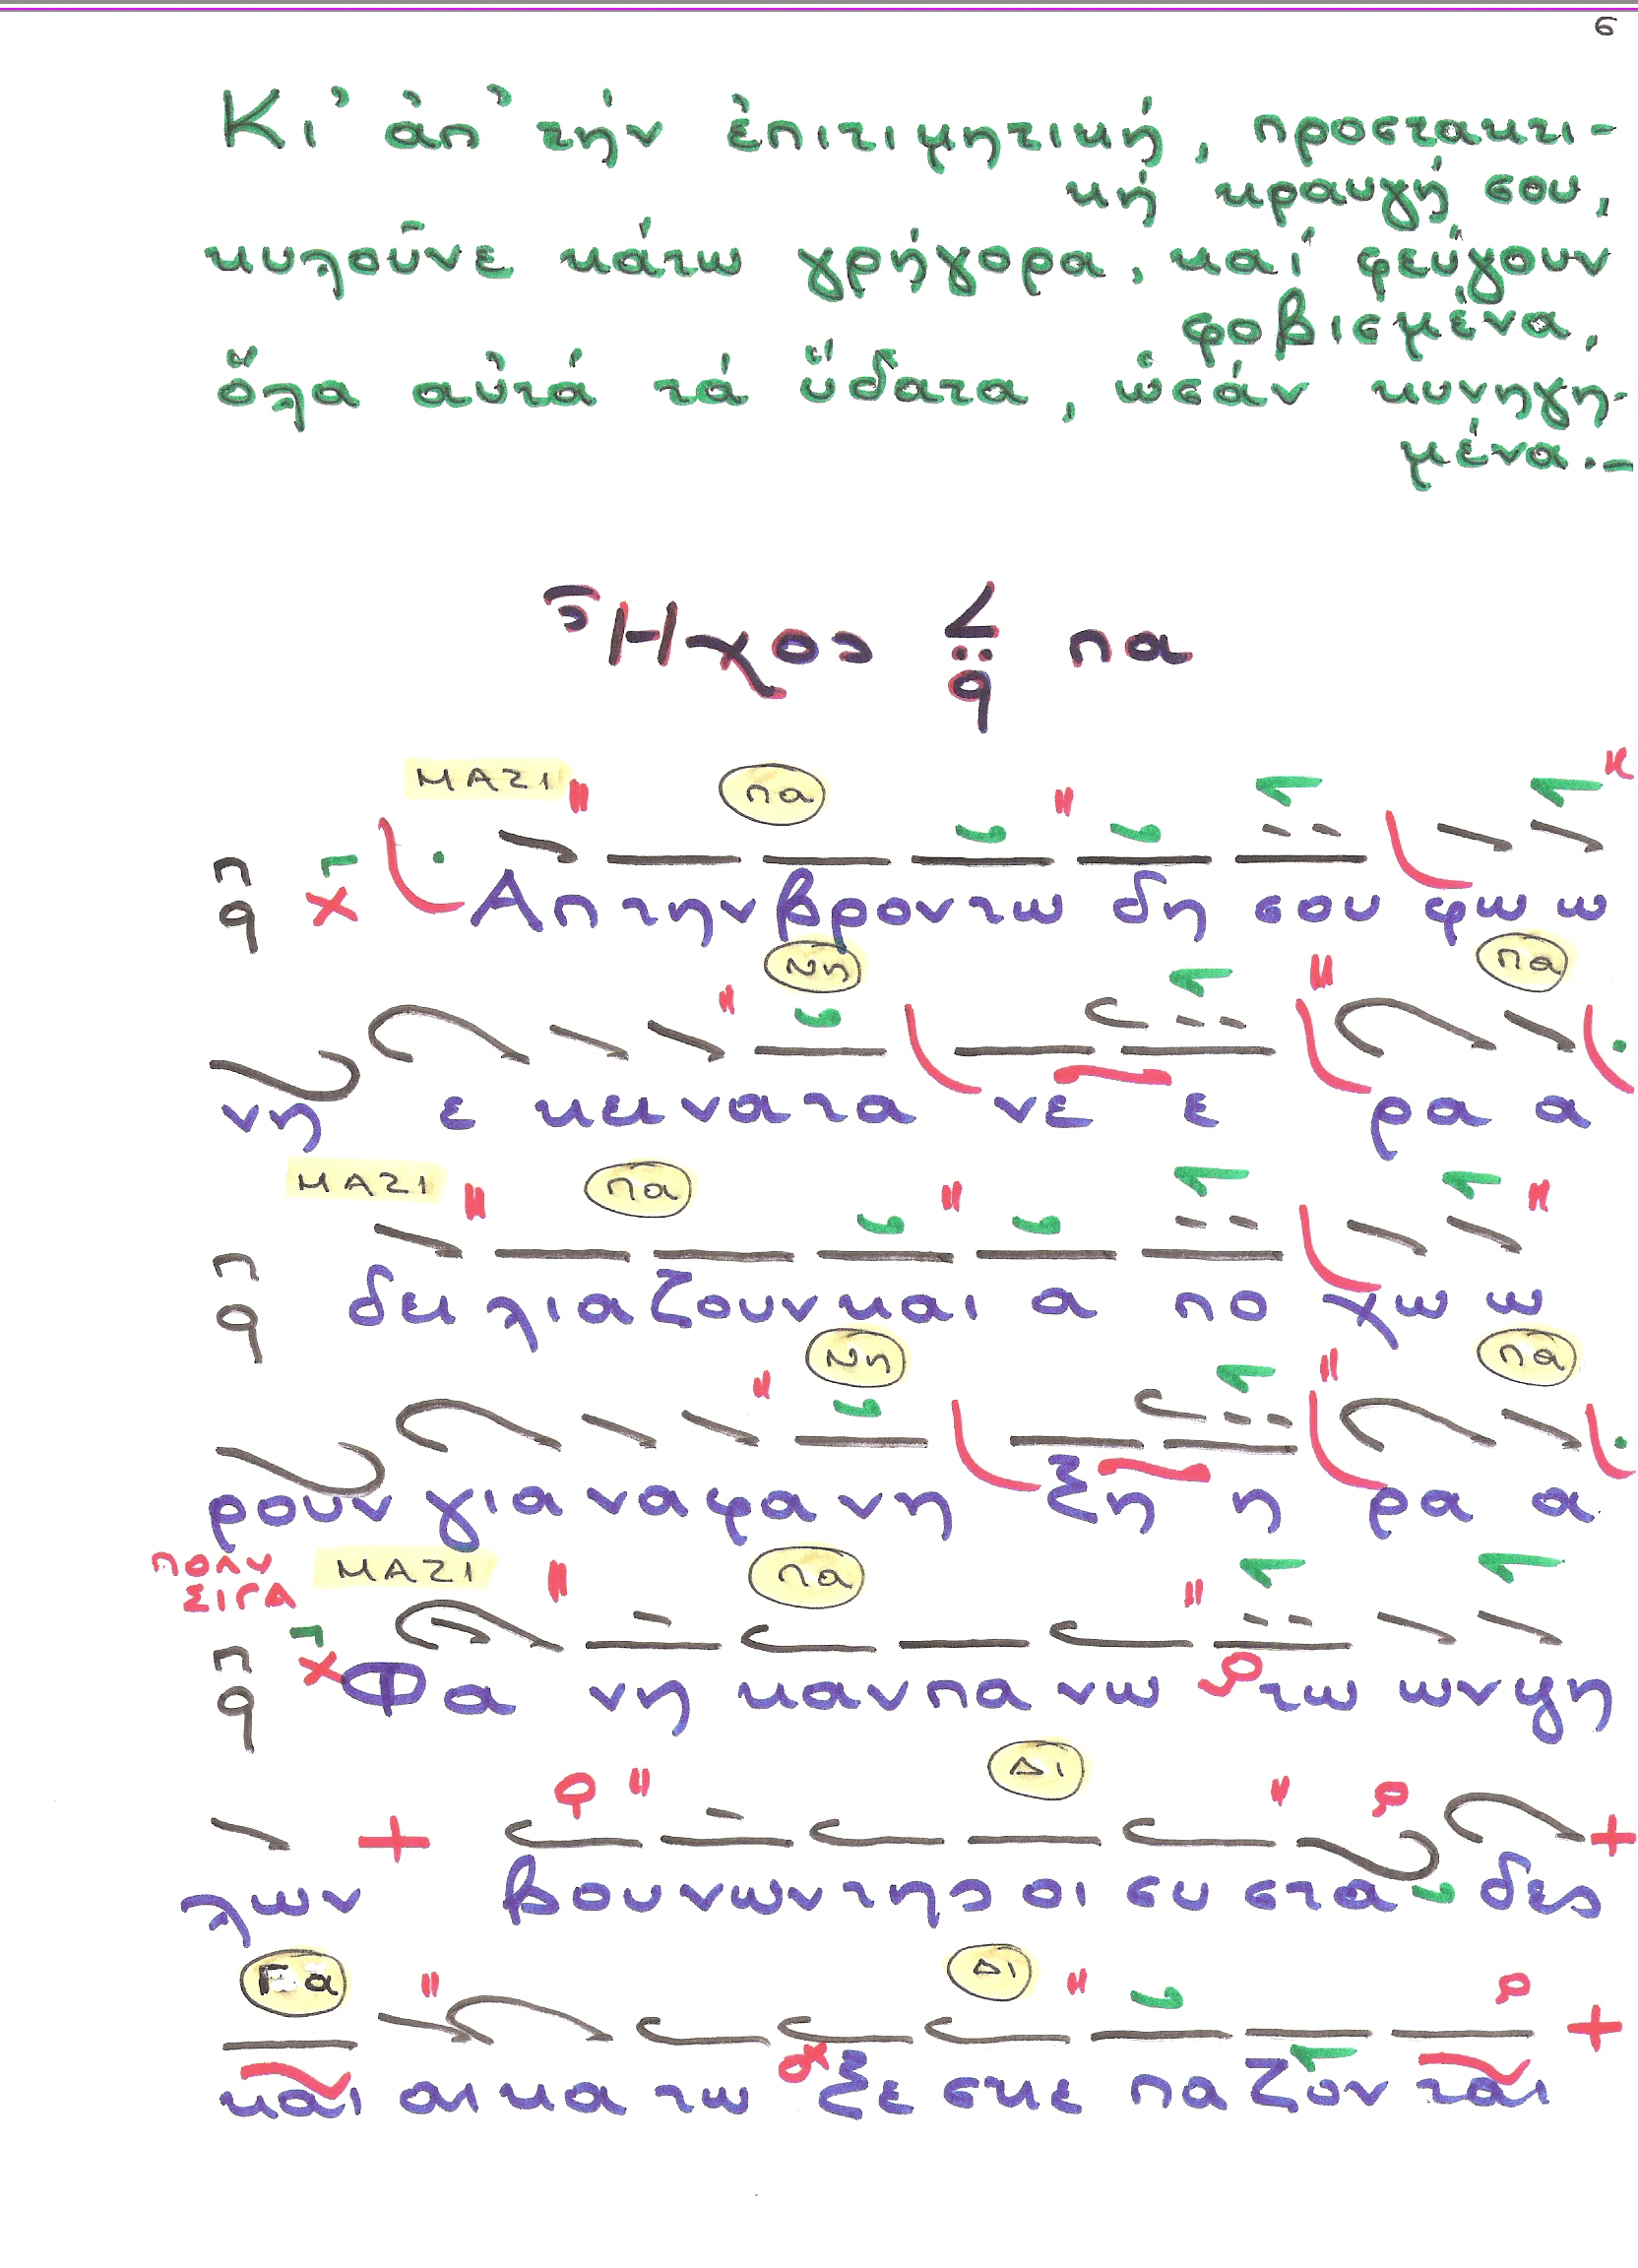 6
Κι' ἀπ' τήν ἐπιτιμητική, προστακτι-
κή κραυγή σου,
κυλοῦνε κάτω γρήγορα, καί φεύγουν
φοβισμένα,
ὅλα αὐτά τά ὕδατα, ὡσάν κυνηγη-
μένα.-
Ἦχος πα
ΜΑΖΙ πα
Απ την βροντω δη σου φω ω
Νη πα
νη ε κεινα τα νε ε ρα α
ΜΑΖΙ πα
δει λιαζουν και α πο χω ω
Νη πα
ρουν για να φα νη ξη η ρα α
ΠΟΛΥ ΣΙΓΑ ΜΑΖΙ πα
Φα νη καν πα νω τω ων ψη
Δι
λων βου νων της οι συ στα δες
Γα Δι
και αι κα τω ξε σκε πα ζον ται